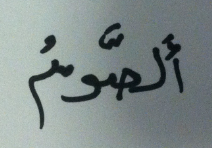 أَلصَّومُ